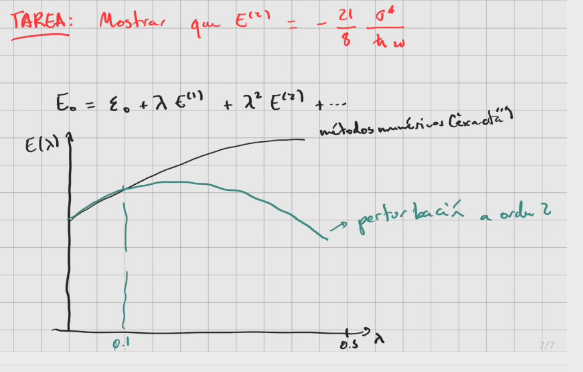 TAREA: Mostrar que E⁽²⁾ = - 21/8 σ⁸/ħω
E₀ = ε₀ + λ E⁽¹⁾ + λ² E⁽²⁾ + ...
métodos numéricos ("exacta")
E(λ)
perturbación a orden 2
0.1
0.5
λ
7/7